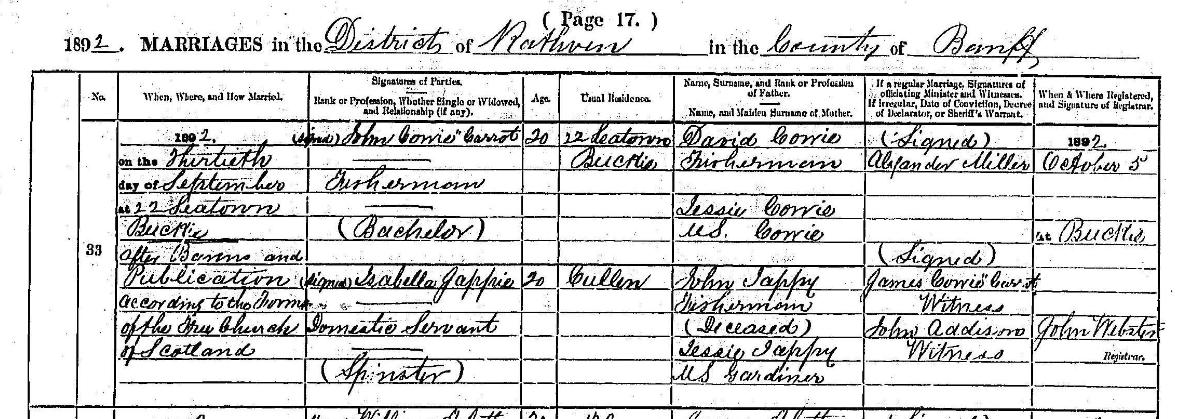 ( Page 17. )
1892. MARRIAGES in the District of Rathven in the County of Banff
No.
When, Where, and How Married.
Signatures of Parties.
Rank or Profession, Whether Single or Widowed,
and Relationship (if any).
Age.
Usual Residence.
Name, Surname, and Rank or Profession
of Father.
Name, and Maiden Surname of Mother.
If a regular Marriage, Signatures of
officiating Minister and Witnesses.
If irregular, Date of Conviction, Decree
of Declarator, or Sheriff's Warrant.
When & Where Registered,
and Signature of Registrar.
33
1892.
on the Thirtieth
day of September
at 22 Seatown
Buckie
After Banns and
Publication
According to the Forms
of the Free Church
of Scotland
(signed) John Cowie "Carrot
Fisherman
(Bachelor)
(signed) Isabella Jappie
Domestic Servant
(Spinster)
20
20
22 Seatown
Buckie
Cullen
David Cowie
Fisherman
Jessie Cowie
M.S. Cowie
John Jappy
Fisherman
(Deceased)
Jessie Jappy
MS Gardiner
(Signed)
Alexander Miller
(Signed)
James Cowie "Carrot
Witness
John Addison
Witness
1892.
October 5
at Buckie
John Webster
Registrar.